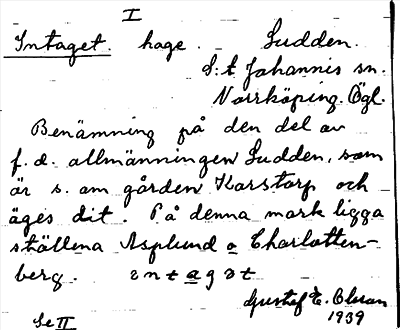 I
Intaget. hage. Sudden.
S:t Johannis sn.
Norrköping. Ögl.
Benämning på den del av
f.d. allmänningen Sudden, som
är s. om gården Karstorp och
äges dit. På denna mark ligga
ställena Asplund o Charlotten-
berg. ɪntagət
Gustaf E. Cluran
1939
Se II